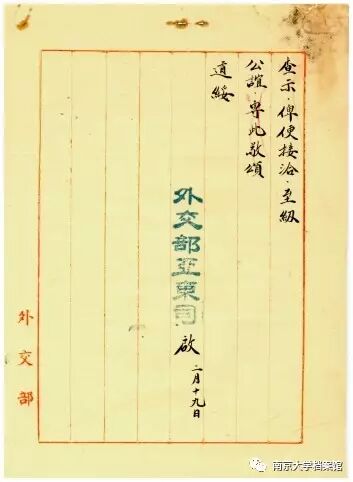 查示·俾便接洽·至級
公誼·專此敬頌
道綏
外交部亞東司 啟
二月十九日
外交部
南京大学档案馆